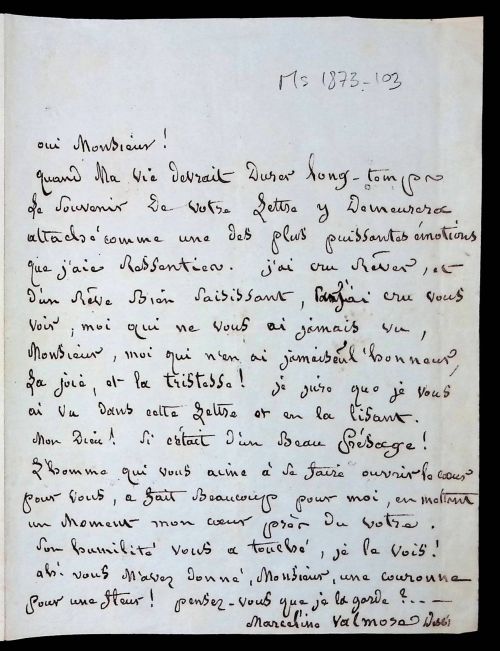 Ms 1873-103
oui Monsieur !
quand Ma vie devrait Durer long-temps
Le Souvenir De votre Lettre y Demeurera
attaché comme une des plus puissantes émotions
que j'aie Ressenties. j'ai cru Rêver, et
d'un Rêve Bien Saisissant, j'ai cru vous
voir, moi qui ne vous ai jamais vu,
Monsieur, moi qui n'en ai jamais eu l'honneur,
La joie, et la tristesse ! je jure que je vous
ai vu dans cette Lettre et en la lisant.
Mon Dieu ! Si c'était d'un Beau Présage !
L'homme qui vous aime à se faire ouvrir le cœur
pour vous, a fait Beaucoup pour moi, en mettant
un Moment mon cœur près du votre.
Son humilité vous a touché, je le vois !
ah ! vous M'avez donné, Monsieur, une couronne
pour une fleur ! pensez-vous que je la garde ? . —
Marceline Valmore